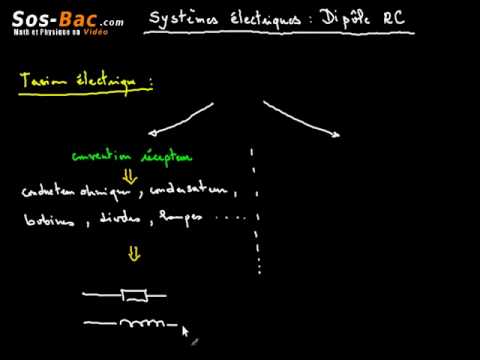 Sos-Bac.com
Math et Physique en Vidéo
Systèmes électriques : Dipôle RC
Tension électrique :
convention récepteur
conducteur ohmique, condensateur,
bobines, diodes, lampes .....